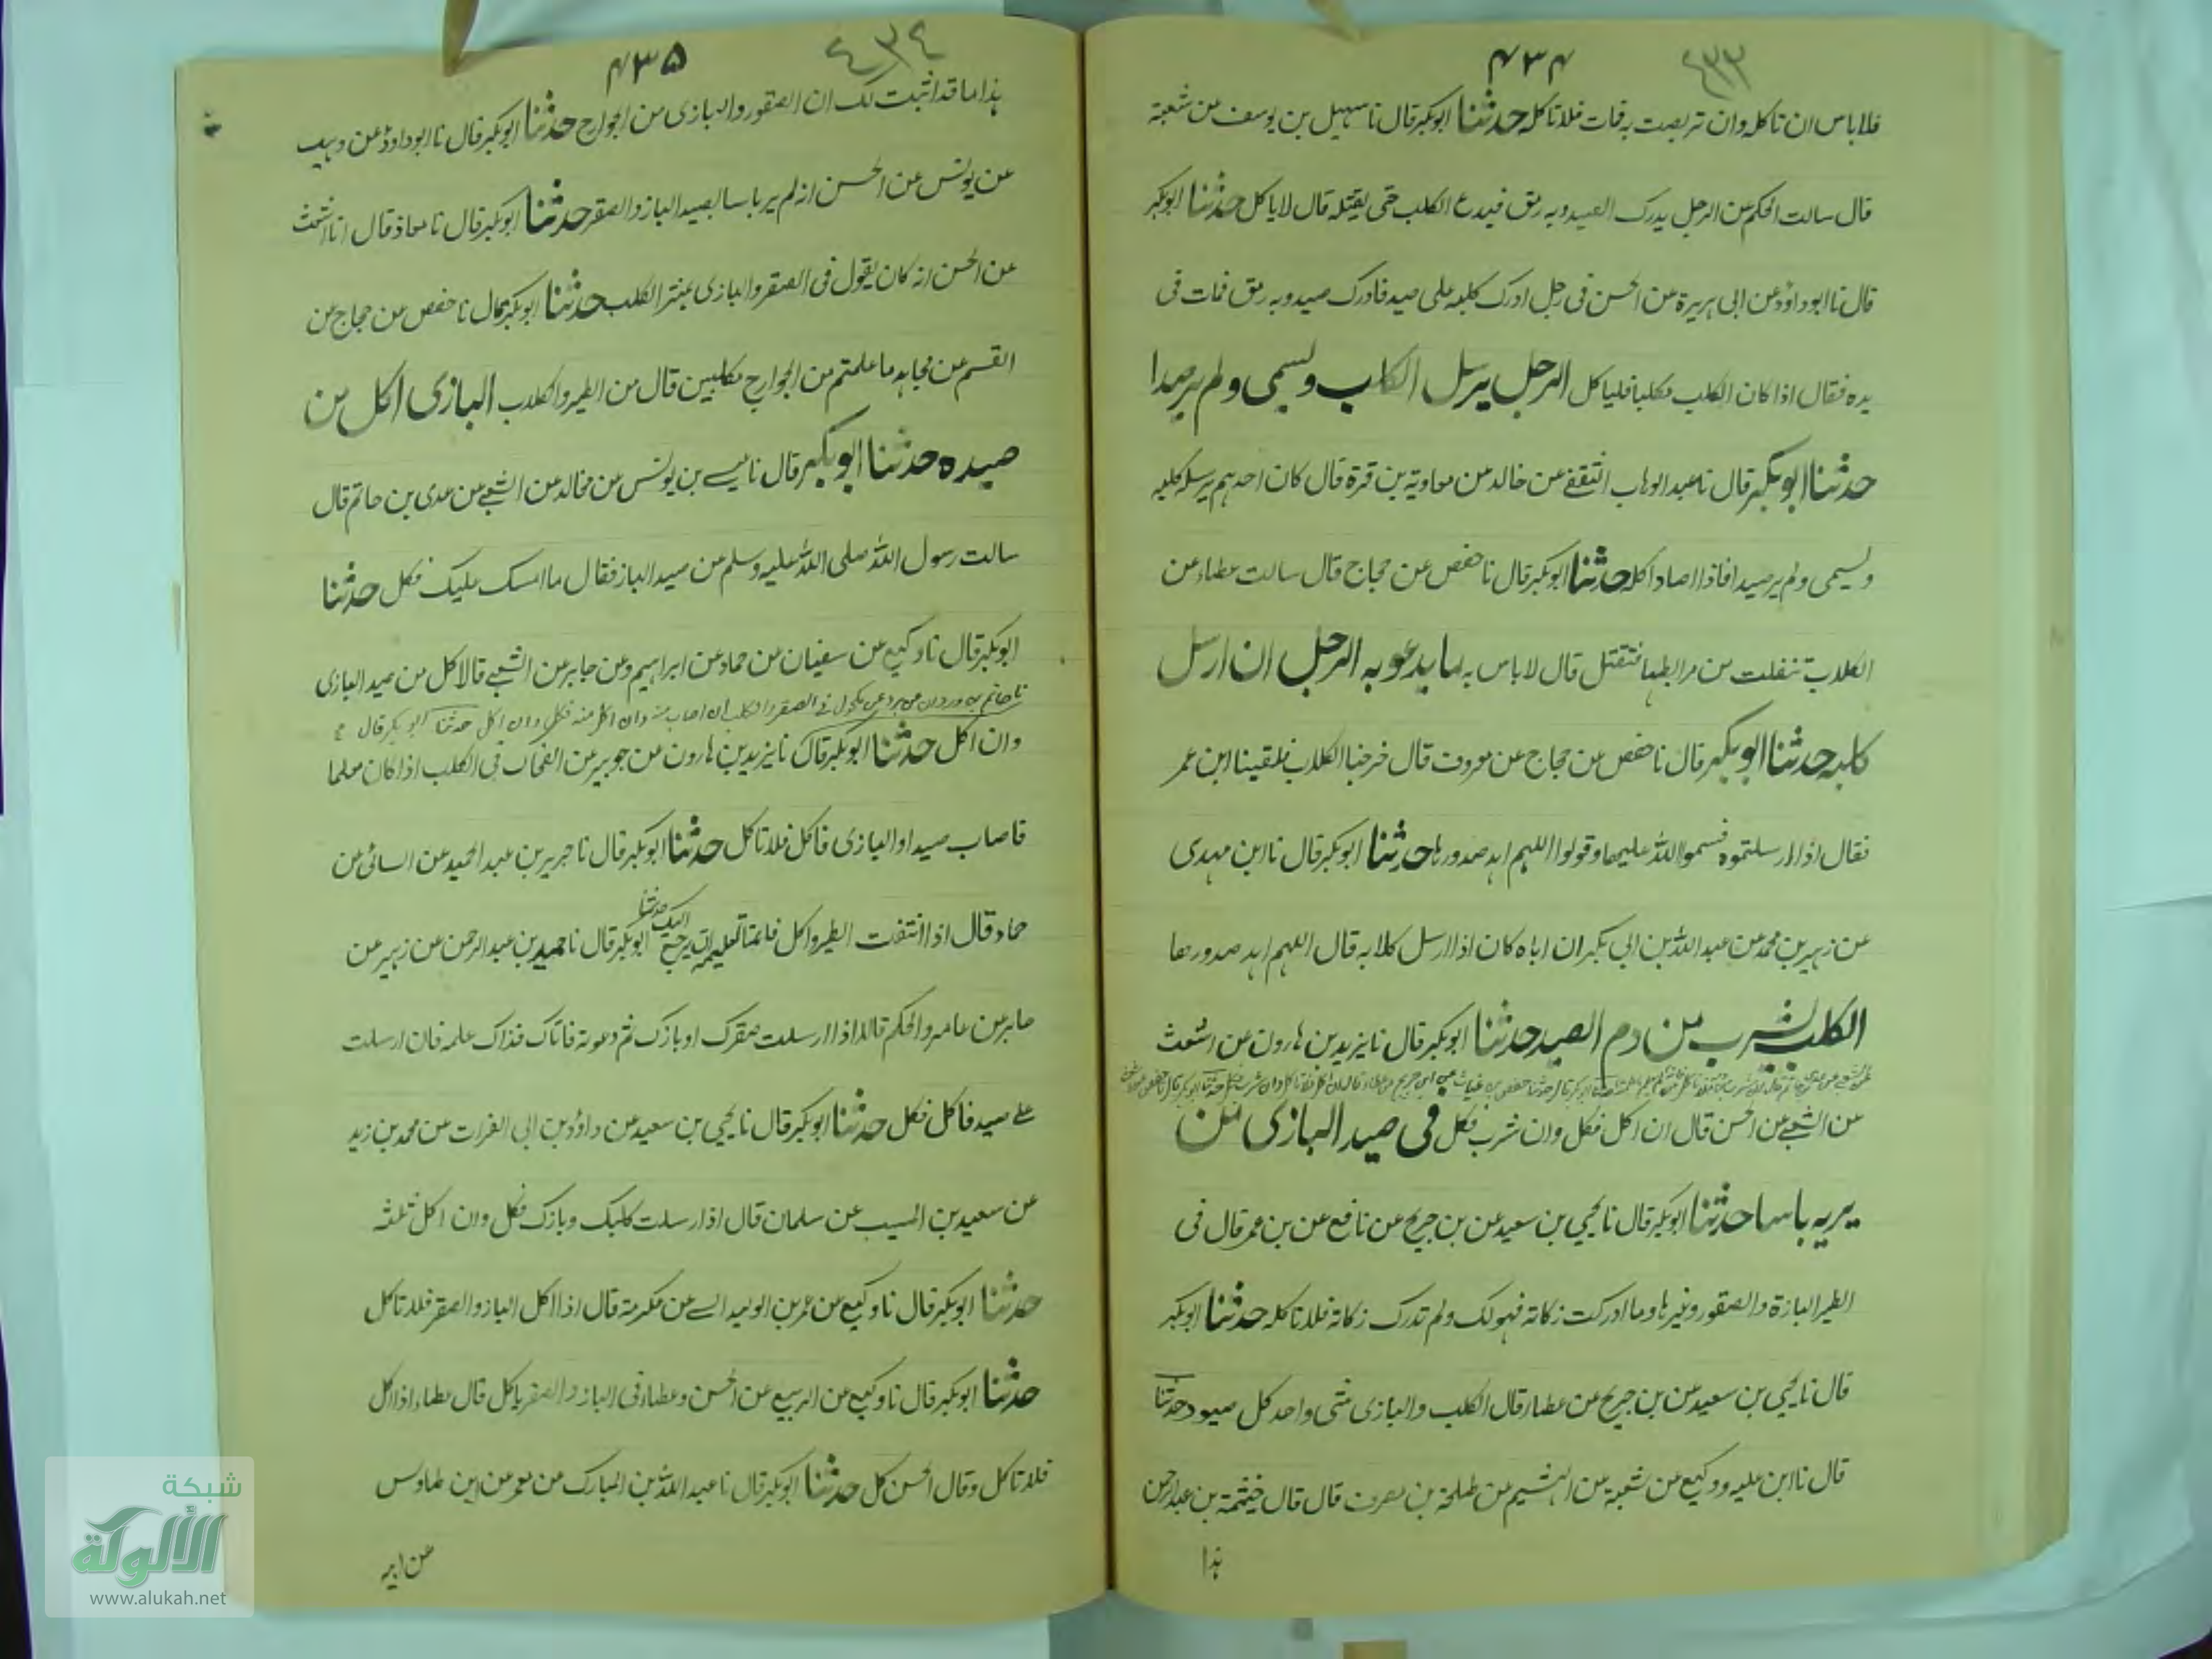 ٤٣٣ ۴۳۴
فلا باس ان تاكله وان تربصت به فات فلا تاكل حدثنا ابو بكر قال نا سهيل بن يوسف عن شعبة
قال سالت الحكم عن الرجل يدرك الصيد وبه رمق فيدع الكلب حتى يقتله قال لا ياكل حدثنا ابو بكر
قال نا ابو داود عن ابى هريرة عن الحسن فى رجل ادرك كلبه على صيد فادرك صيد وبه رمق فمات فى
يده فقال اذا كان الكلب مكلبا فلياكل الرجل يرسل الكلب ويسمى ولم ير صيدا
حدثنا ابو بكر قال نا عبد الوهاب الثقفى عن خالد عن معاوية بن قرة قال كان احدهم يرسل كلبه
ويسمى ولم ير صيدا فاذا اصاد اكله حدثنا ابو بكر قال نا حفص عن حجاج قال سالت عطاء عن
الكلاب تنفلت من مرابطها فتقتل قال لا باس به ما يدعو به الرجل ان ارسل
كلبه حدثنا ابو بكر قال نا حفص عن حجاج عن معروف قال خرجنا الكلاب فلقينا ابن عمر
فقال اذا ارسلتموه فسموا الله عليها وقولوا اللهم اهد صدورها حدثنا ابو بكر قال نا ابن مهدى
عن زهير بن محمد عن عبد الله بن ابى بكر ان اباه كان اذا ارسل كلابه قال اللهم اهد صدورها
الكلب يشرب من دم الصيد حدثنا ابو بكر قال نا يزيد بن هارون عن اشعث
عن الشعبى عن الحسن قال ان اكل فكل وان شرب فكل فى صيد البازى من
ير به باسا حدثنا ابو بكر قال نا يحيى بن سعيد عن بن جريج عن نافع عن بن عمر قال فى
الطير البازة والصقور وغيرها وما ادركت زكاته فهو لك ولم تدرك زكاته فلا تاكله حدثنا ابو بكر
قال نا يحيى بن سعيد عن بن جريج عن عطاء قال الكلب والبازى شى واحد كل صيود حدثنا
قال نا ابن عليه ووكيع عن شعبة عن الهشيم عن طلحة بن مصرف قال قال خيثمة بن عبد الرحمن
هذا
٤٣٤ ۴۳۵
هذا ما قد اثبت لك ان الصقور والبازى من الجوارح حدثنا ابو بكر قال نا ابو داود عن وهيب
عن يونس عن الحسن انه لم ير باسا بصيد الباز والصقر حدثنا ابو بكر قال نا معاذ قال انا اشعث
عن الحسن انه كان يقول فى الصقر والبازى بمنزلة الكلب حدثنا ابو بكر قال نا حفص عن حجاج عن
القسم عن مجاهد ما علمتم من الجوارح مكلبين قال من الطير والكلاب البازى اكل من
صيده حدثنا ابو بكر قال نا عيسى بن يونس عن مجالد عن الشعبى عن عدى بن حاتم قال
سالت رسول الله صلى الله عليه وسلم عن صيد الباز فقال ما امسك عليك فكل حدثنا
ابو بكر قال نا وكيع عن سفيان عن حماد عن ابراهيم وعن جابر عن الشعبى قالا كل من صيد البازى
نا حاتم بن وردان عن برد عن مكحول فى الصقر والكلب ان اصاب منه وان اكل منه فكل وان اكل حدثنا ابو بكر قال
وان اكل حدثنا ابو بكر قال نا يزيد بن هارون عن جويبر عن الضحاك فى الكلب اذا كان معلما
فاصاب صيد او البازى فاكل فلا تاكل حدثنا ابو بكر قال نا جرير بن عبد الحميد عن السائى عن
حماد قال اذا انتفت الطير واكل فانما تعليمه ان يرجع اليك حدثنا ابو بكر قال نا حميد بن عبد الرحمن عن زهير عن
جابر عن عامر والحكم قالا اذا ارسلت صقرك او بازك ثم دعوته فاتاك فذاك علمه فان ارسلت
على صيد فاكل فكل حدثنا ابو بكر قال نا يحيى بن سعيد عن داود بن ابى الفرات عن محمد بن زيد
عن سعيد بن المسيب عن سلمان قال اذا ارسلت كلبك وبازك فكل وان اكل ثلثه
حدثنا ابو بكر قال نا وكيع عن عمر بن الوليد السى عن عكرمة قال اذا اكل الباز والصقر فلا تاكل
حدثنا ابو بكر قال نا وكيع عن الربيع عن الحسن وعطاء فى الباز والصقر ياكل قال عطاء اذا اكل
فلا تاكل وقال الحسن كل حدثنا ابو بكر قال نا عبد الله بن المبارك عن معمر عن ابن طاوس
عن ابيه
شبكة
الألوكة
www.alukah.net